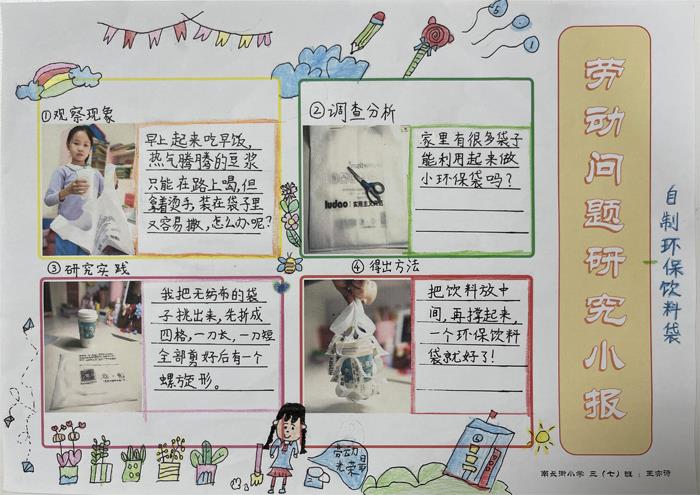 劳动问题研究小报
自制环保饮料袋
①观察现象
早上起来吃早饭,
热气腾腾的豆浆
只能在路上喝,但
拿着烫手,装在袋子里
又容易撒,怎么办呢?
②调查分析
家里有很多袋子
能利用起来做
小环保袋吗?
ludao
实用主义
③研究实践
我把无纺布的袋
子挑出来,先折成
四格,一刀长,一刀短
全部剪好后有一个
螺旋形。
④得出方法
把饮料放中
间,再撑起来,
一个环保饮料
袋就好了!
劳动
光荣
南长街小学 三(七)班:王奕涔